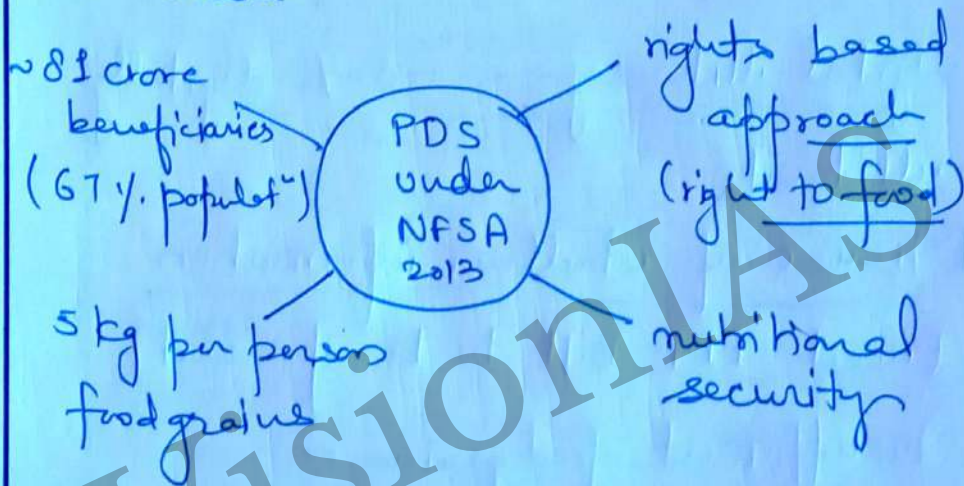 ~81 crore
beneficiaries
(67% populatⁿ)
PDS
under
NFSA
2013
rights based
approach
(right to food)
5 kg per person
foodgrains
nutritional
security
VisionIAS